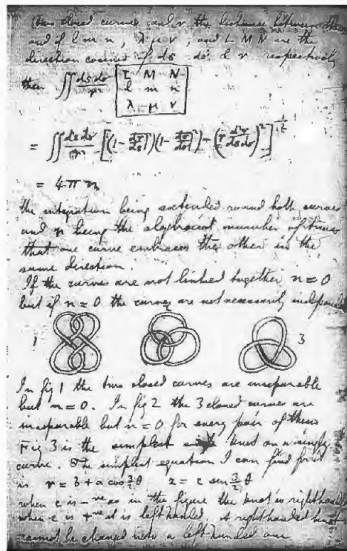 two closed curves and r the distance between them
and if l m n, λ μ ν, and L M N are the
direction cosines of ds dσ & r respectively
then ∬ ds dσ / r² | L M N | l m n | λ μ ν |
= ∬ ds dσ / r² [(1 - )(1 - ) - (r d²r / ds dσ)²]^½
= 4πn
the integration being extended round both curves
and n being the algebraical number of times
that one curve embraces the other in the
same direction.
If the curves are not linked together n = 0
but if n = 0 the curves are not necessarily independent
1 3
In fig 1 the two closed curves are inseparable
but n = 0. In fig 2 the 3 closed curves are
inseparable but n = 0 for every pair of them
Fig 3 is the simplest knot on a single
curve. The simplest equation I can find for it
is r = b + a cos 3/2 θ z = c sin 3/2 θ
when c is -ve as in the figure the knot is right handed
when c is +ve it is left handed. A right handed knot
cannot be changed into a left handed one